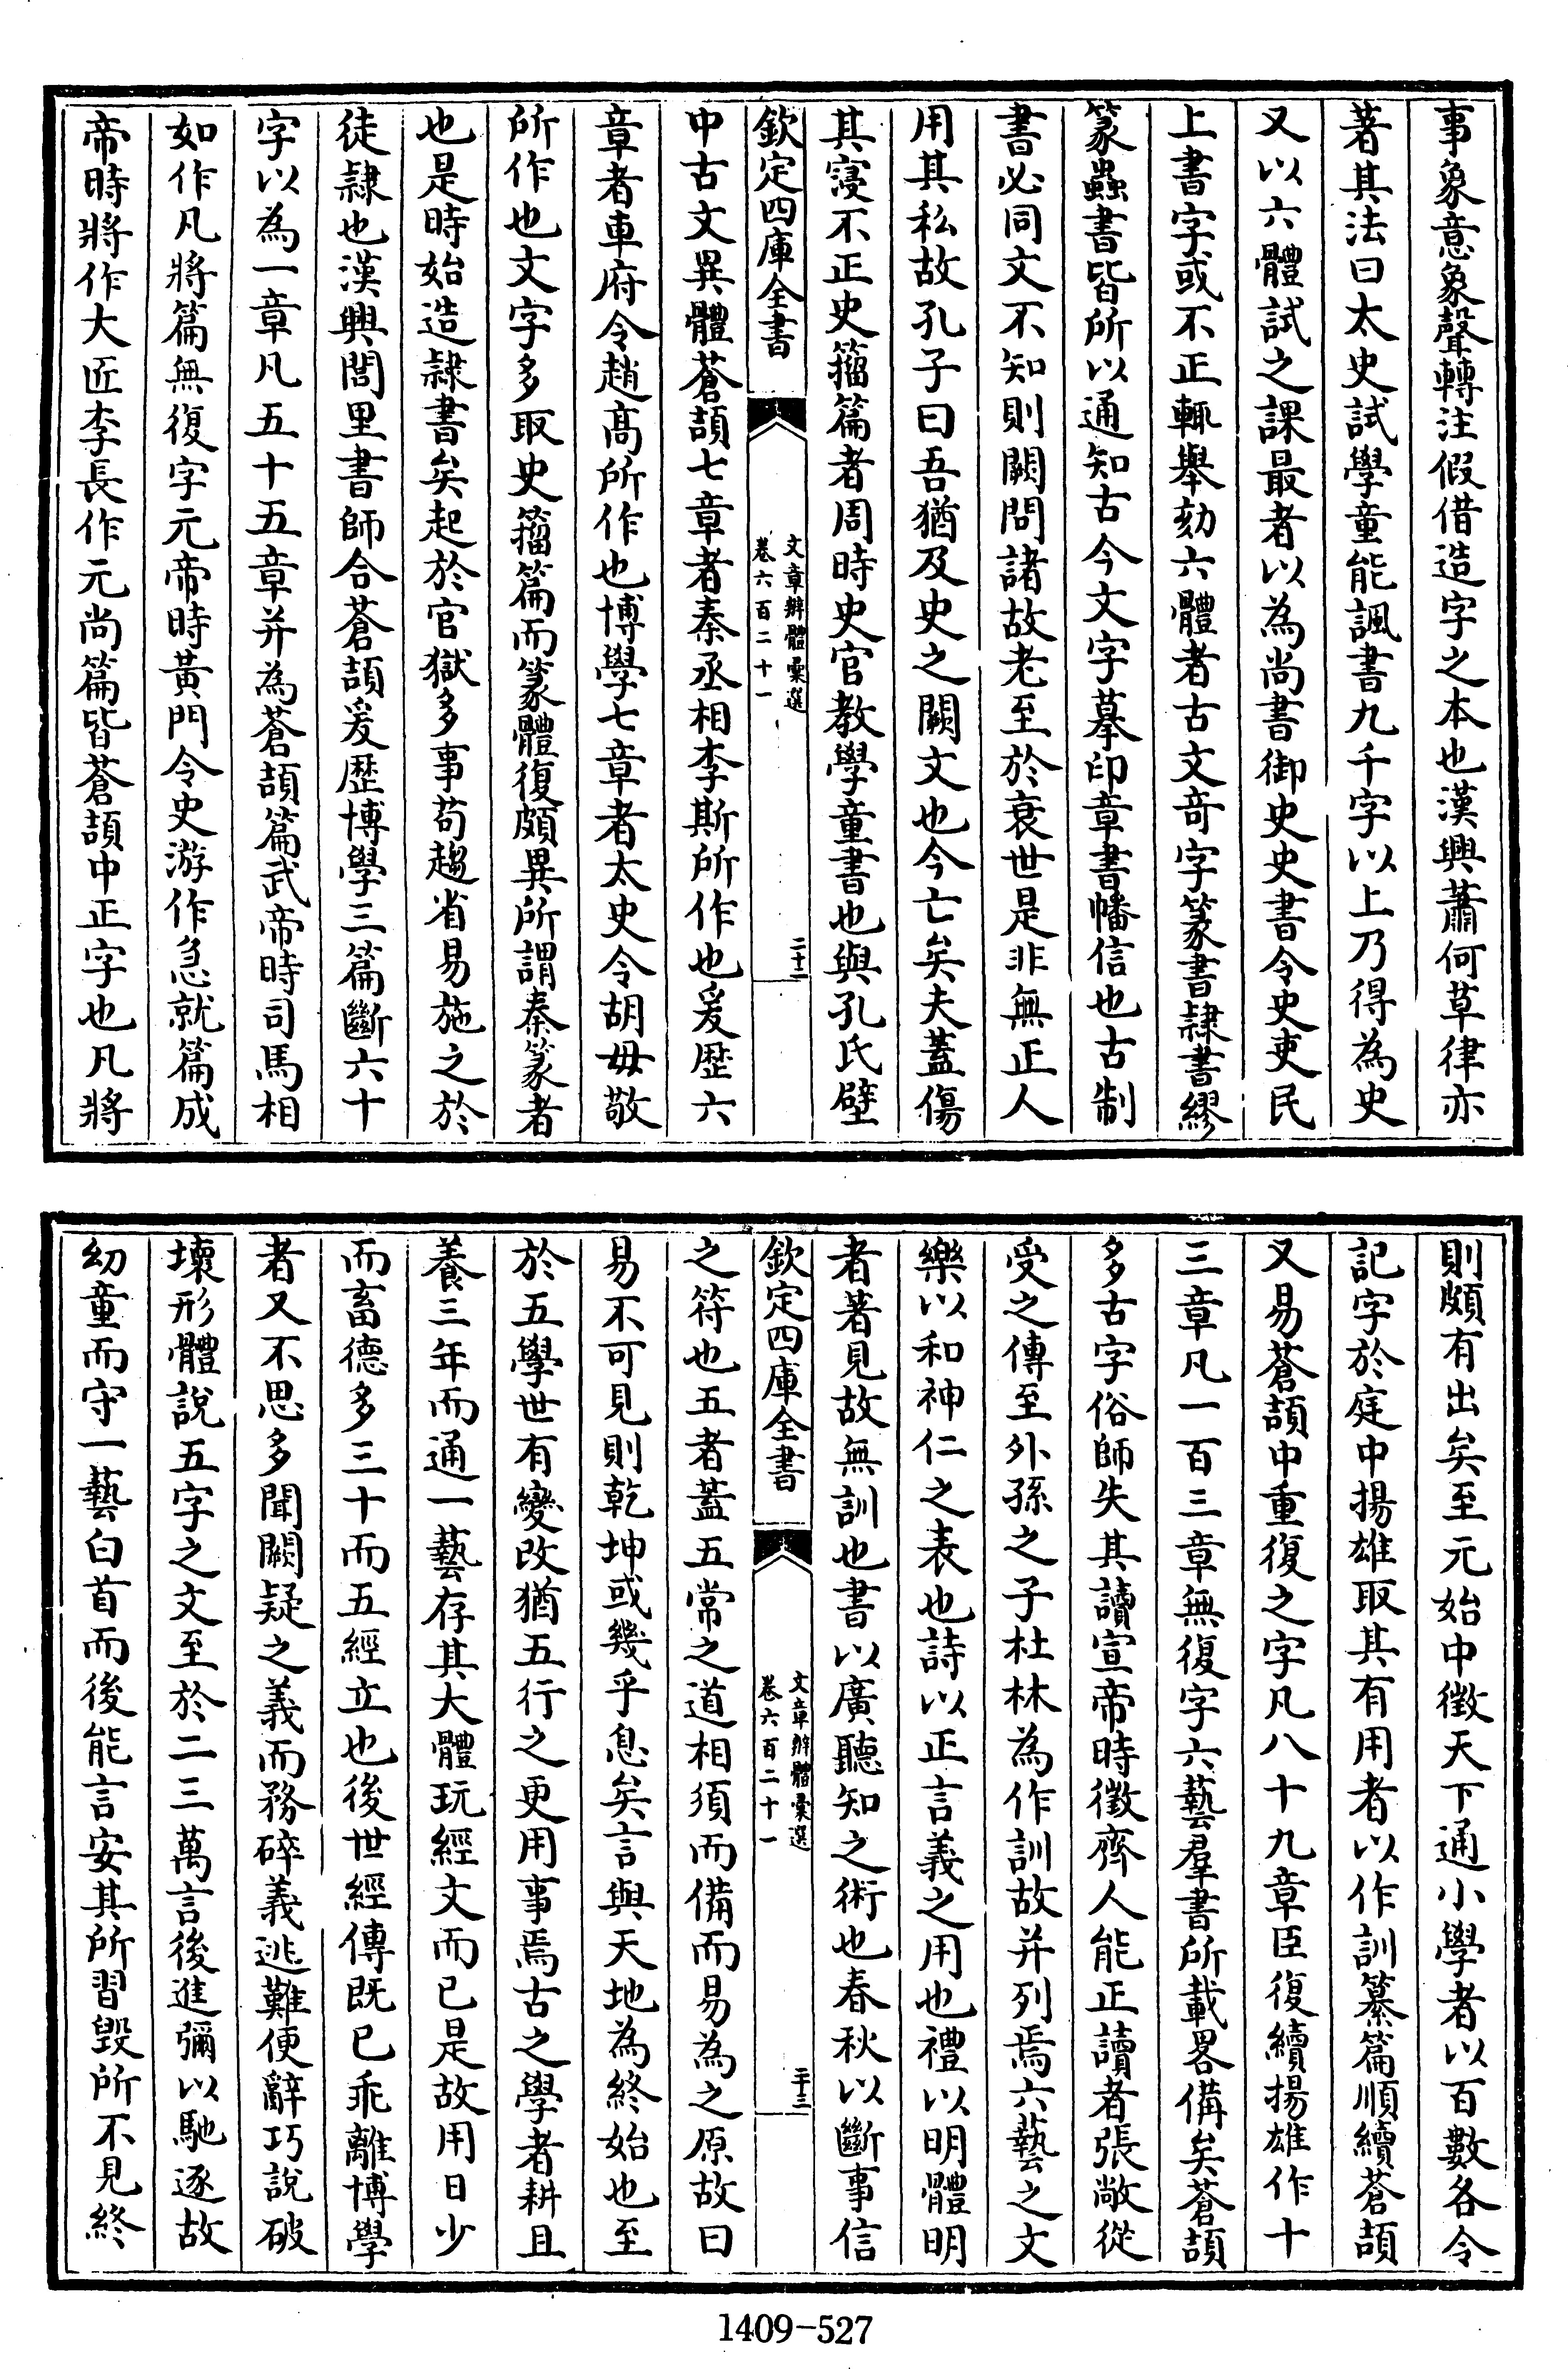 事象意象聲轉注假借造字之本也漢興蕭何草律亦
著其法曰太史試學童能諷書九千字以上乃得為史
又以六體試之課最者以為尚書御史史書令史吏民
上書字或不正輒舉劾六體者古文奇字篆書隸書繆
篆蟲書皆所以通知古今文字摹印章書幡信也古制
書必同文不知則闕問諸故老至於衰世是非無正人
用其私故孔子曰吾猶及史之闕文也今亡矣夫蓋傷
其寖不正史籀篇者周時史官教學童書也與孔氏壁
欽定四庫全書
文章辨體彙選
卷六百二十一
二十二
中古文異體蒼頡七章者秦丞相李斯所作也爰歷六
章者車府令趙高所作也博學七章者太史令胡毋敬
所作也文字多取史籀篇而篆體復頗異所謂秦篆者
也是時始造隸書矣起於官獄多事苟趨省易施之於
徒隸也漢興閭里書師合蒼頡爰歷博學三篇斷六十
字以為一章凡五十五章并為蒼頡篇武帝時司馬相
如作凡將篇無復字元帝時黃門令史游作急就篇成
帝時將作大匠李長作元尚篇皆蒼頡中正字也凡將
則頗有出矣至元始中徵天下通小學者以百數各令
記字於庭中揚雄取其有用者以作訓纂篇順續蒼頡
又易蒼頡中重復之字凡八十九章臣復續揚雄作十
三章凡一百三章無復字六藝羣書所載畧備矣蒼頡
多古字俗師失其讀宣帝時徵齊人能正讀者張敞從
受之傳至外孫之子杜林為作訓故并列焉六藝之文
樂以和神仁之表也詩以正言義之用也禮以明體明
者著見故無訓也書以廣聽知之術也春秋以斷事信
欽定四庫全書
文章辨體彙選
卷六百二十一
二十三
之符也五者蓋五常之道相須而備而易為之原故曰
易不可見則乾坤或幾乎息矣言與天地為終始也至
於五學世有變改猶五行之更用事焉古之學者耕且
養三年而通一藝存其大體玩經文而已是故用日少
而畜德多三十而五經立也後世經傳既已乖離博學
者又不思多聞闕疑之義而務碎義逃難便辭巧說破
壞形體說五字之文至於二三萬言後進彌以馳逐故
幼童而守一藝白首而後能言安其所習毀所不見終
1409-527